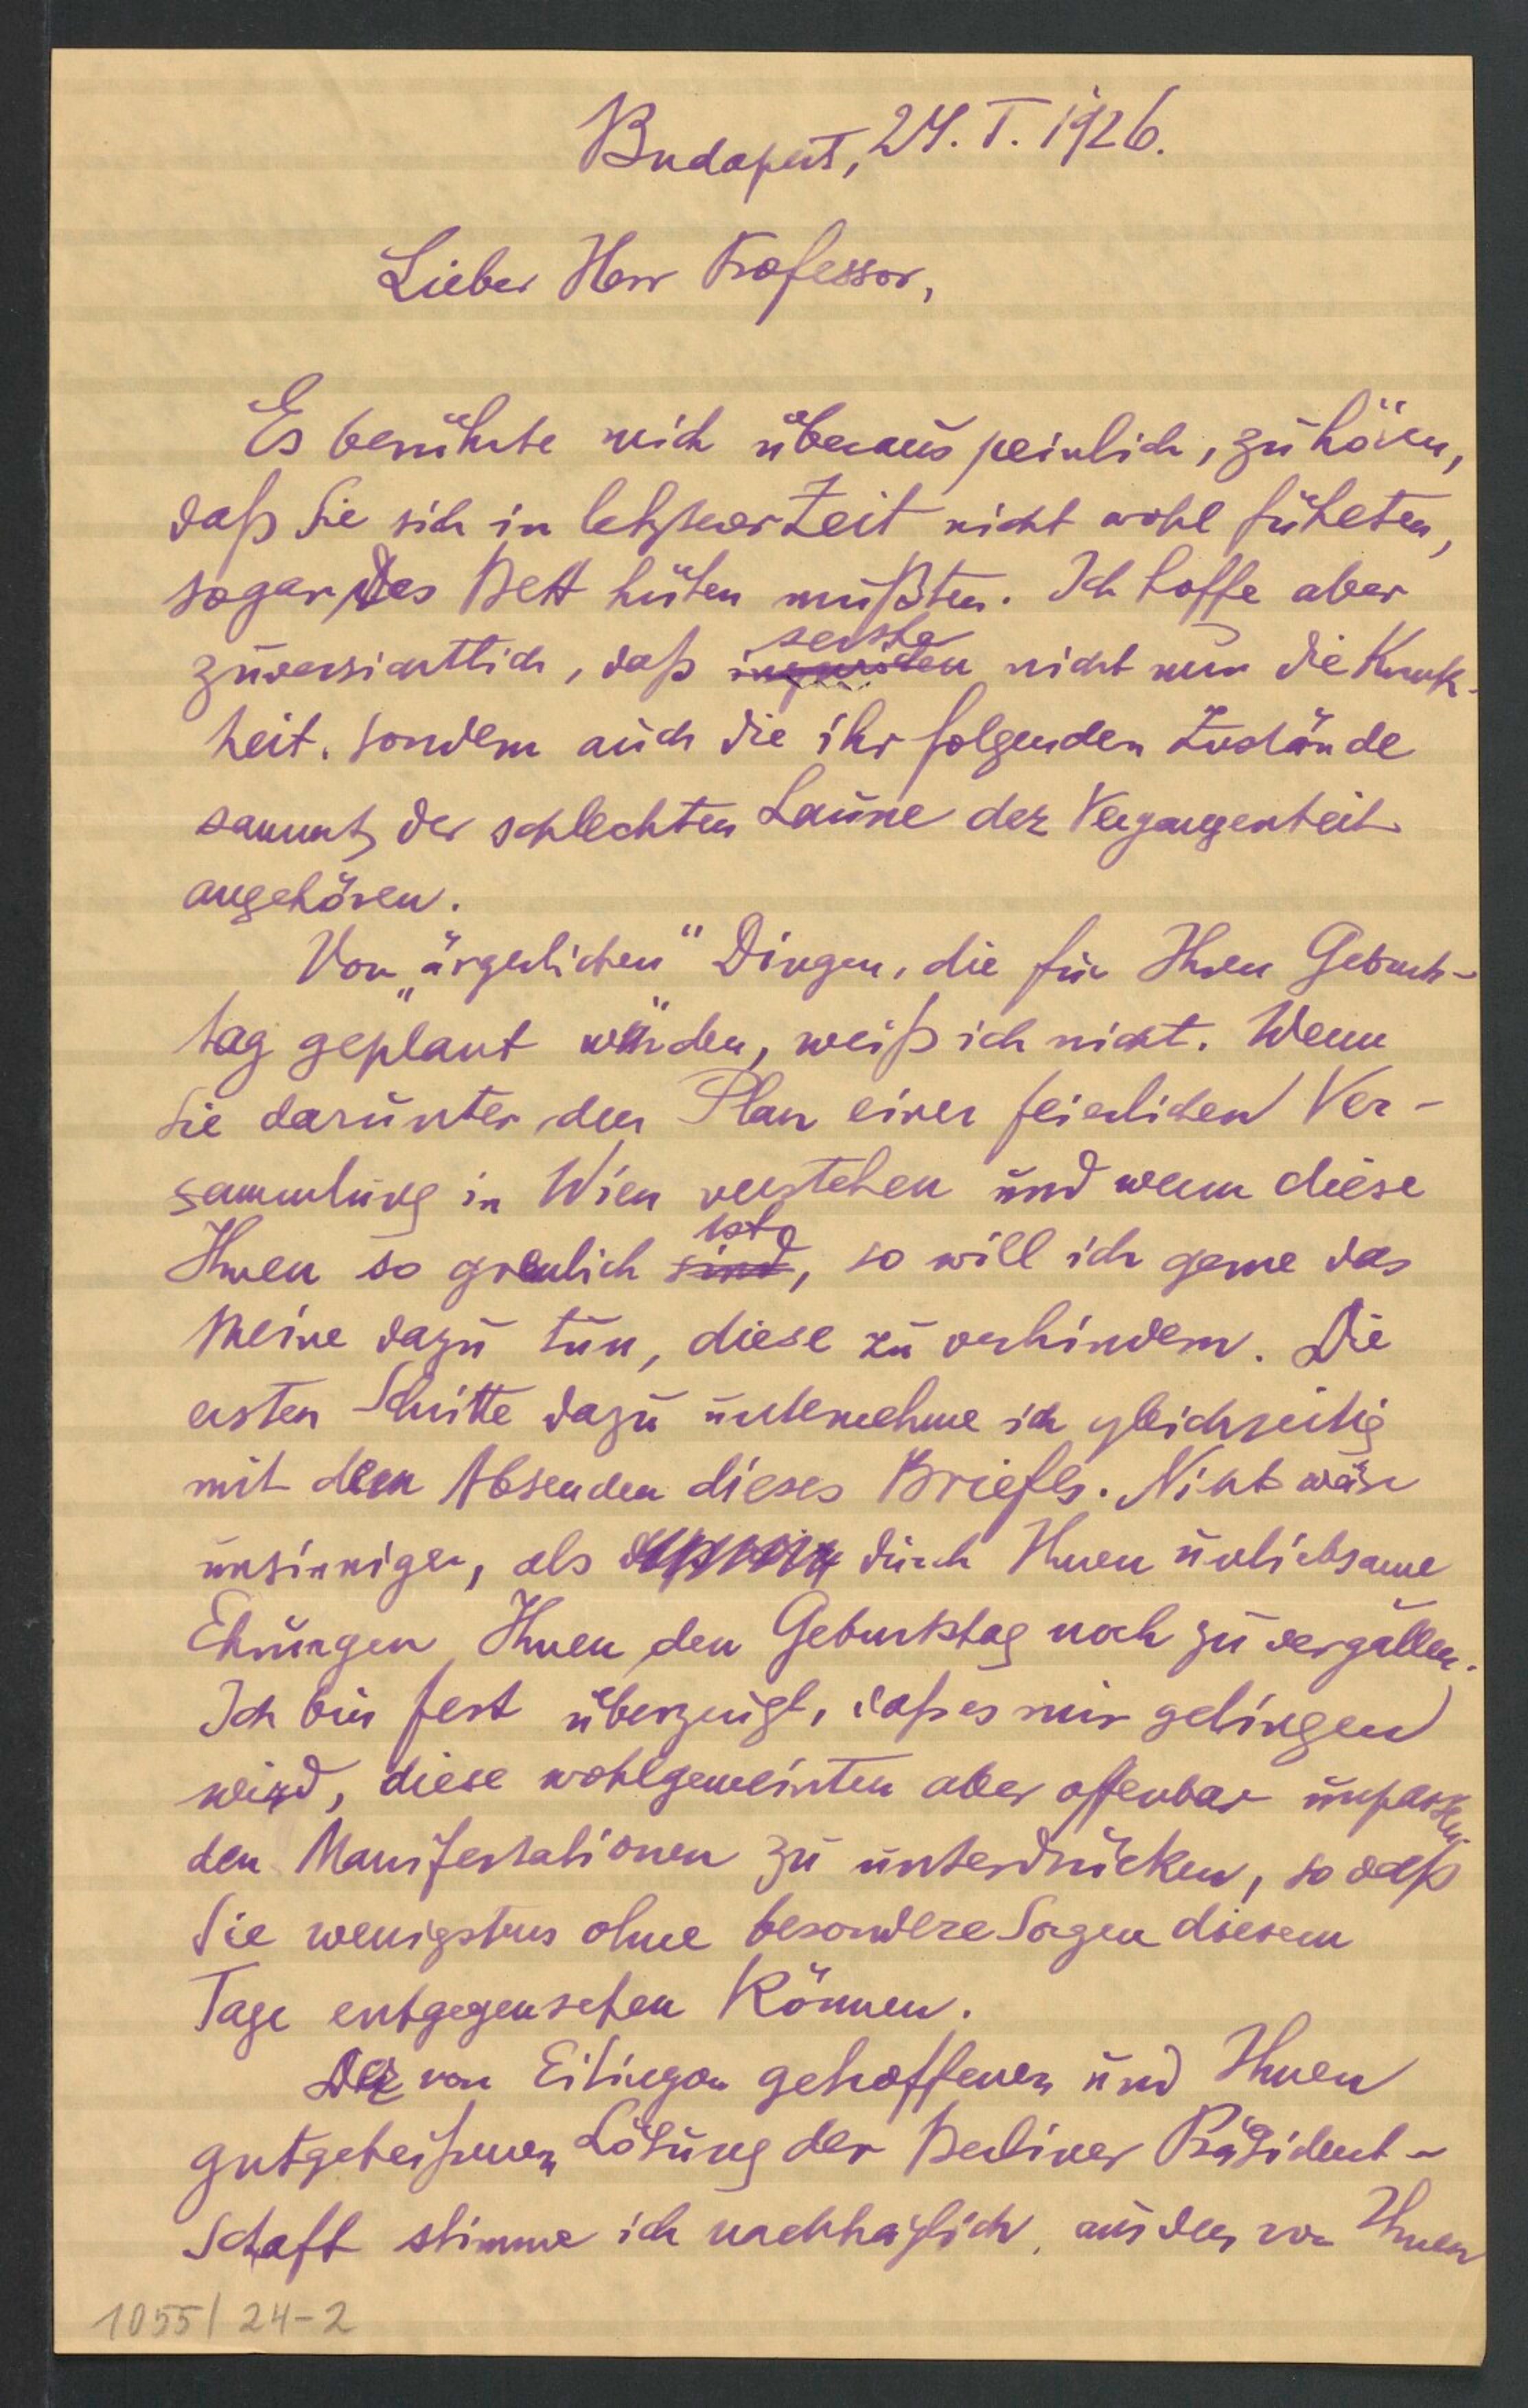 Budapest, 24. I. 1926.
Lieber Herr Professor,
Es berührte mich überaus peinlich, zu hören,
daß Sie sich in letzter Zeit nicht wohl fühlten,
sogar das Bett hüten mußten. Ich hoffe aber
zuversichtlich, daß seither nicht nur die Krank-
heit, sondern auch die ihr folgenden Zustände
sammt der schlechten Laune der Vergangenheit
angehören.
Von „ärgerlichen" Dingen, die für Ihren Geburts-
tag geplant würden, weiß ich nicht. Wenn
Sie darunter den Plan einer feierlichen Ver-
sammlung in Wien verstehen und wenn diese
Ihnen so greulich sind ist, so will ich gerne das
Meine dazu tun, diese zu verhindern. Die
ersten Schritte dazu unternehme ich gleichzeitig
mit dem Absenden dieses Briefes. Nichts wäre
unsinniger, als durch Ihnen unliebsame
Ehrungen Ihnen den Geburtstag noch zu vergällen.
Ich bin fest überzeugt, daß es mir gelingen
wird, diese wohlgemeinten aber offenbar unpassen-
den Manifestationen zu unterdrücken, so daß
Sie wenigstens ohne besondere Sorgen diesem
Tage entgegensehen können.
Der von Eitingon getroffenen und Ihnen
gutgeheißenen Lösung der Berliner Präsident-
schaft stimme ich nachträglich, aus den von Ihnen
1055/24-2